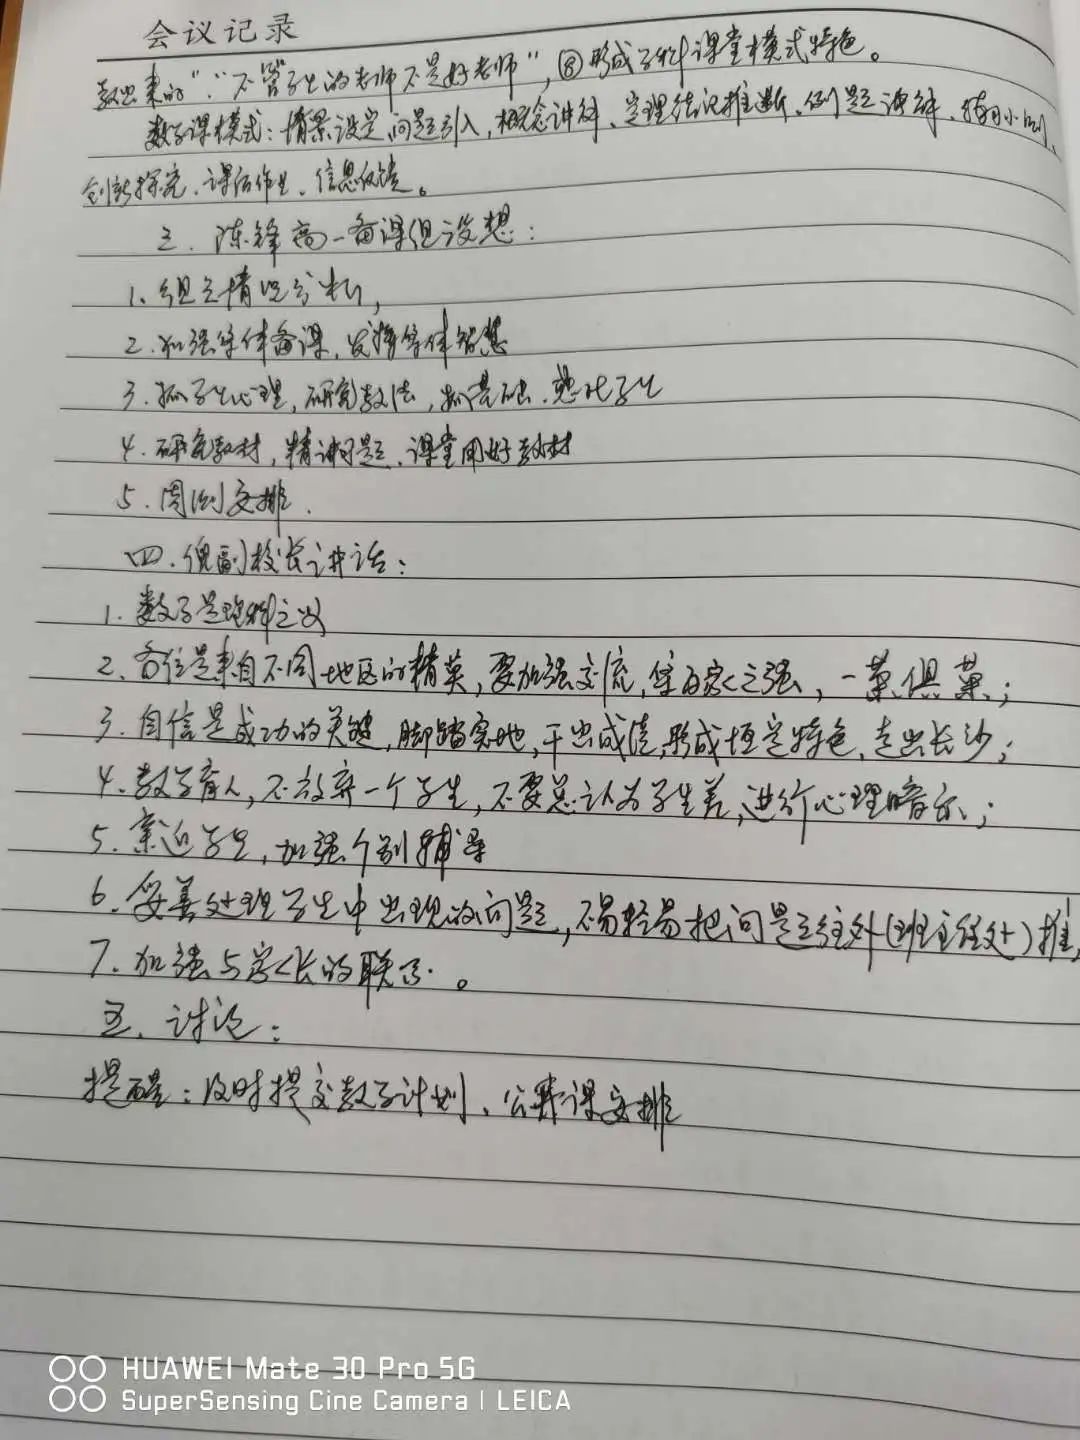 会议记录
教出来的”“不管学生的老师不是好老师”,⑧形成学科课堂模式特色。
数学课模式:情景设定、问题引入,概念讲解、定理结论推断、例题讲解、
创新探究、课后作业、信息反馈。
三、陈锋高一备课组设想:
1、组立情况分析,
2、加强集体备课,发挥集体智慧
3、抓学生心理,研究教法,抓基础、
4、研究教材,精讲习题、课堂用好教材
5、周测安排.
四、倪副校长讲话:
1、数学是理科之父
2、各位是来自不同地区的精英,要加强交流,集百家之强,一荣俱荣;
3、自信是成功的关键,脚踏实地,干出成绩,形成恒定特色,走出长沙;
4、教学育人,不放弃一个学生,不要总认为学生差,进行心理暗示;
5、亲近学生,加强个别辅导
6、妥善处理学生中出现的问题,不易轻易把问题往外(班主任处)推,
7、加强与家长的联系。
五、讨论:
提醒:及时提交教学计划、公开课安排
HUAWEI Mate 30 Pro 5G
SuperSensing Cine Camera | LEICA